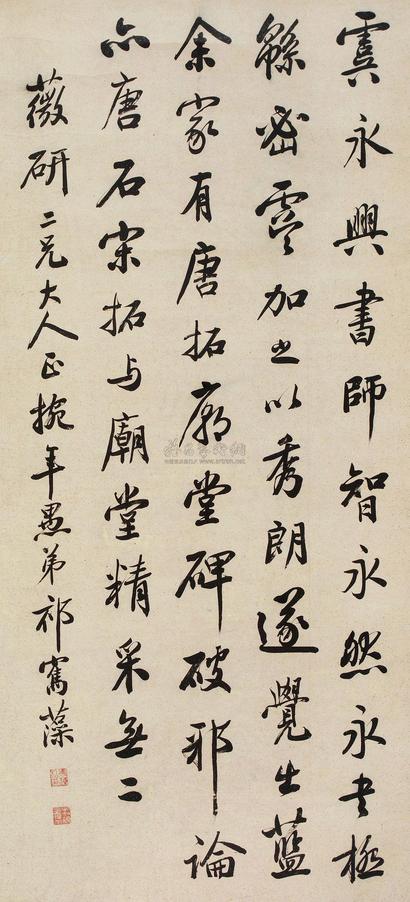 虞永興書師智永然永書極
緜密虞加之以秀朗遂覺出藍
余家有唐拓廟堂碑破邪論
亦唐石宋拓与廟堂精采無二
薇研二兄大人正捥年愚弟祁寯藻